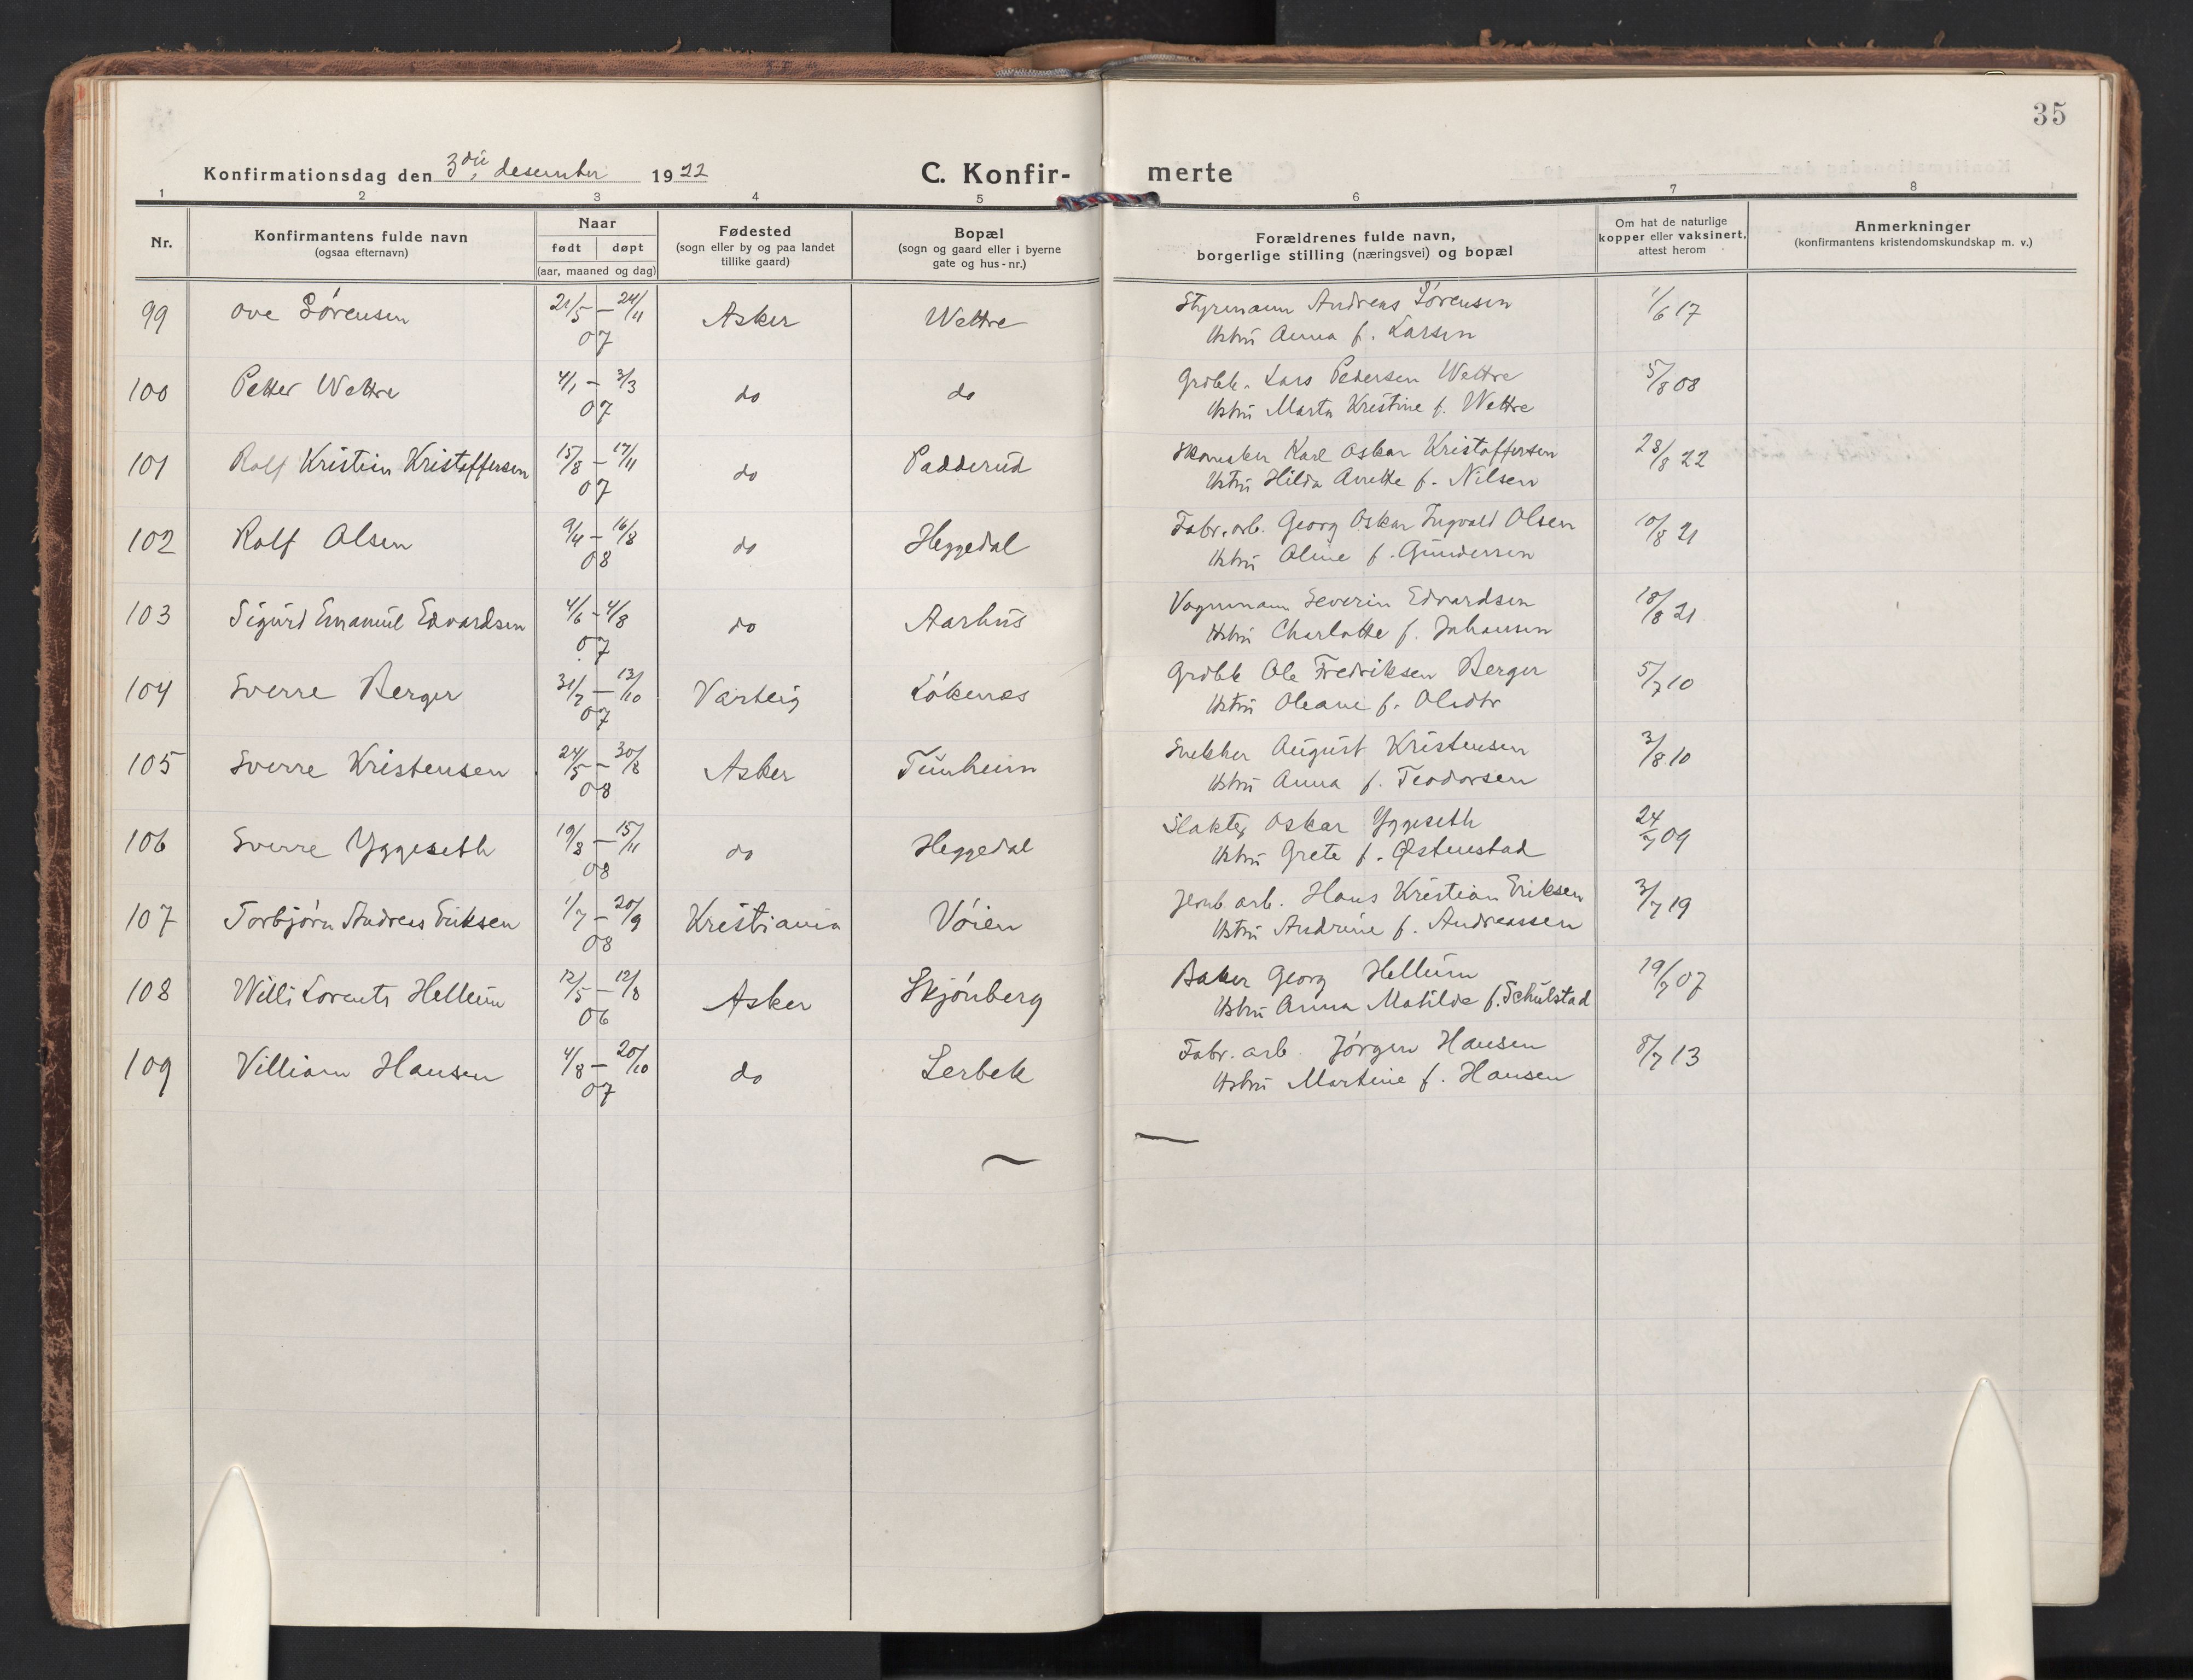 35
Konfirmationsdag den 3die desember 1922 C. Konfir- merte
1 2 3 4 5 6 7 8
Nr. Konfirmantens fulde navn (ogsaa efternavn) Naar født døpt (aar, maaned og dag) Fødested (sogn eller by og paa landet tillike gaard) Bopæl (sogn og gaard eller i byerne gate og hus-nr.) Forældrenes fulde navn, borgerlige stilling (næringsvei) og bopæl Om hat de naturlige kopper eller vaksinert, attest herom Anmerkninger (konfirmantens kristendomskundskap m. v.)
99 Ove Sørensen 21/5 – 24/11 07 Asker Wettre Styrmann Andreas Sørensen 1/6 17
Hstru Anna f. Larsen
100 Petter Wettre 4/1 – 3/3 07 do do Grdbk. Lars Pedersen Wettre 5/8 08
Hstru Marta Kristine f. Wettre
101 Rolf Kristian Kristoffersen 15/8 – 17/11 07 do Padderud Skomaker Karl Oskar Kristoffersen 28/8 22
Hstru Hilda Anette f. Nilsen
102 Rolf Olsen 9/4 – 16/8 08 do Heggedal Fabr. arb. Georg Oskar Ingvald Olsen 10/8 21
Hstru Oline f. Gundersen
103 Sigurd Emanuel Edvardsen 4/6 – 4/8 07 do Aarhus Vognmann Severin Edvardsen 18/8 21
Hstru Charlotte f. Johansen
104 Sverre Berger 31/7 – 13/10 07 Varteig Løkenes Grdbk Ole Fredriksen Berger 5/7 10
Hstru Oleane f. Olsdtr
105 Sverre Kristensen 24/5 – 30/8 08 Asker Tunheim Snekker August Kristensen 3/8 10
Hstru Anna f. Teodorsen
106 Sverre Yggeseth 19/8 – 15/11 08 do Heggedal Slakter Oskar Yggeseth 24/7 09
Hstru Grete f. Østenstad
107 Torbjørn Andreas Eriksen 1/7 – 20/9 08 Kristiania Vøien Jernb. arb. Hans Kristian Eriksen 3/7 19
Hstru Andrine f. Andreassen
108 Willi Lorents Hellum 12/5 – 12/8 06 Asker Skjønberg Baker Georg Hellum 19/7 07
Hstru Anna Matilde f. Schulstad
109 Villiam Hansen 4/8 – 20/10 07 do Lerbek Fabr. arb. Jørgen Hansen 8/7 13
Hstru Martine f. Hansen